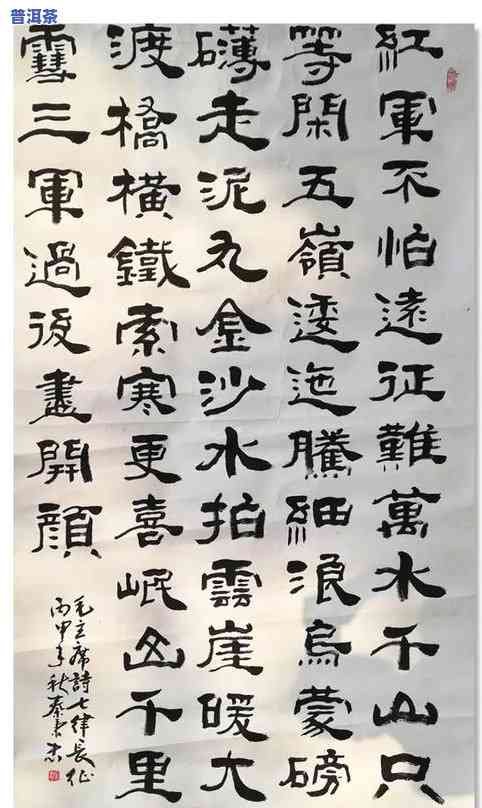 普洱茶
紅軍不怕遠征難萬水千山只
等閑五嶺逶迤騰細浪烏蒙磅
礴走泥丸金沙水拍雲崖暖大
渡橋橫鐵索寒更喜岷山千里
雪三軍過後盡開顏
毛主席詩七律長征
丙申年秋